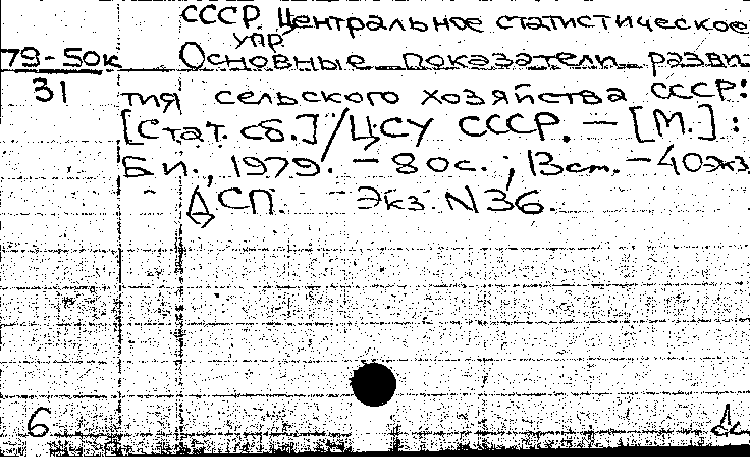 СССР. Центральное статистическое
упр.
79-50к Основные показатели разви-
31 тия сельского хозяйства СССР:
[Стат. сб.]/ЦСУ СССР. — [М.]:
Б и., 1979. – 80с.; 13см. – 40экз
ДСП. Экз. N36.
6